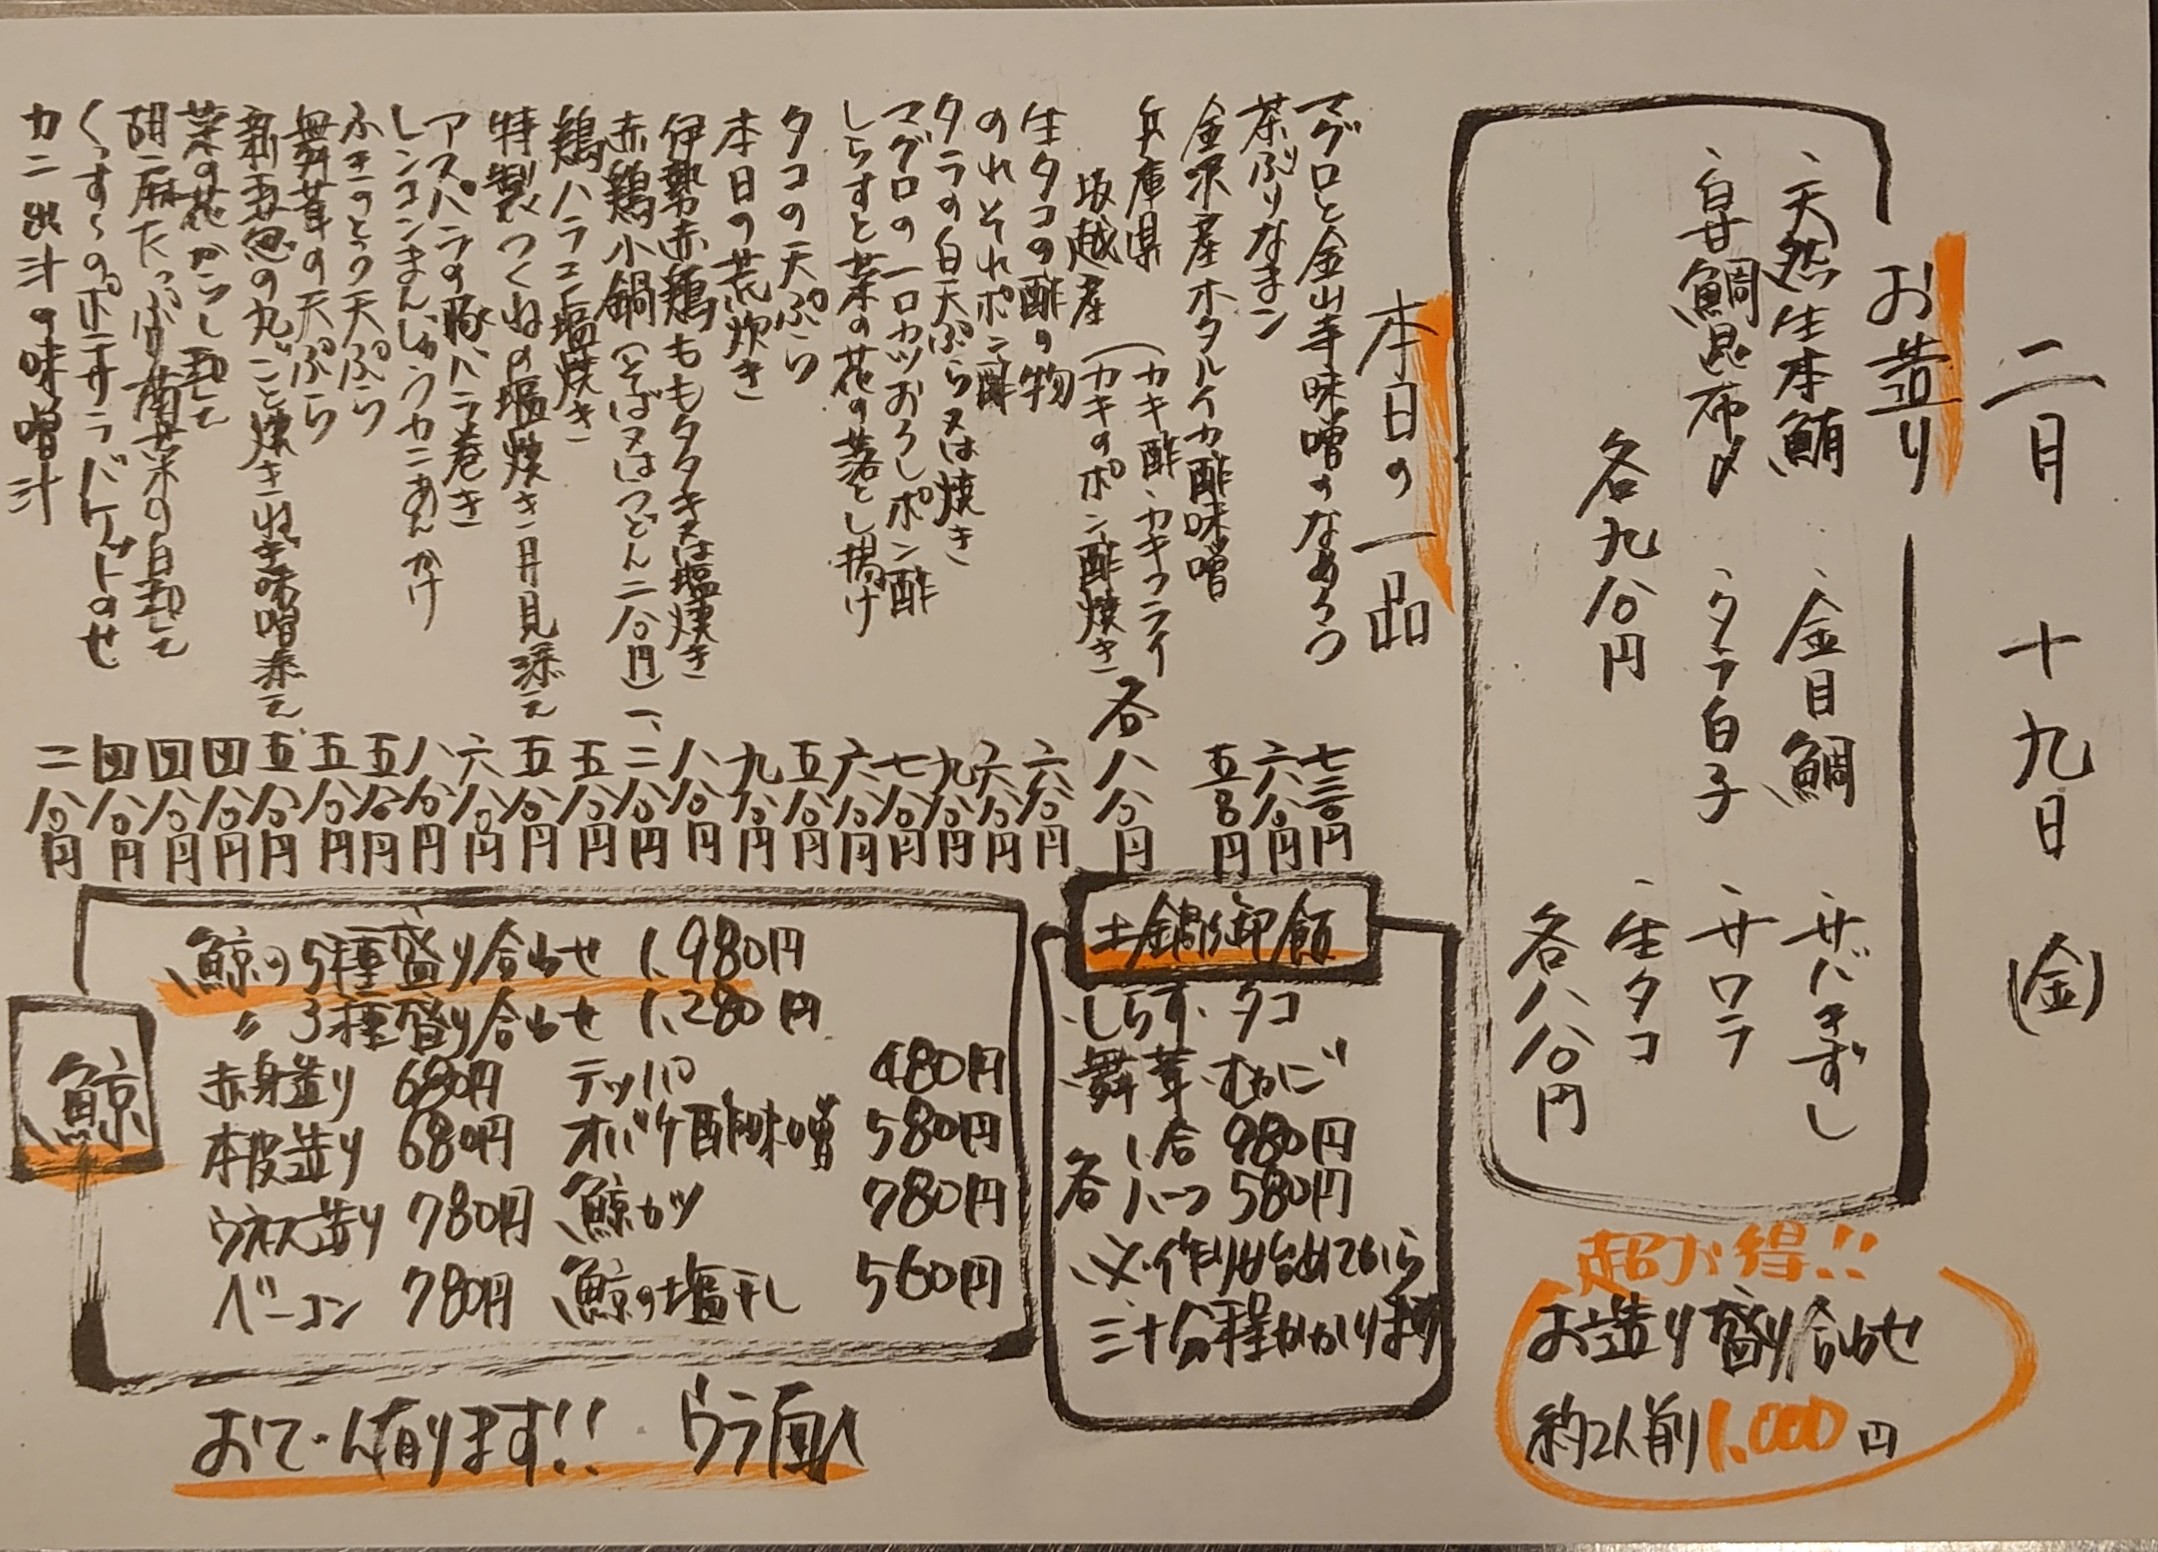 二月 十九日 (金)
お造り
、天然生本鮪 、金目鯛 、サバきずし
、白甘鯛昆布〆 、タラ白子 、サワラ
、生タコ
各九八〇円
各八八〇円
超お得!!
お造り盛り合わせ
約2人前1,000円
本日の一品
マグロと金山寺味噌のなめろう 七三〇円
茶ぶりなまこ 六八〇円
金沢産ホタルイカ酢味噌 五八〇円
兵庫県
坂越産
(カキ酢、カキフライ
(カキのポン酢焼き 各八八〇円
生タコの酢の物 六八〇円
のれそれポン酢 六八〇円
タラの白天ぷら又は焼き 九八〇円
マグロの一口カツおろしポン酢 七八〇円
しらすと菜の花の落とし揚げ 六八〇円
タコの天ぷら 五八〇円
本日の荒炊き 九八〇円
伊勢赤鶏ももタタキ又は塩焼き 八八〇円
赤鶏小鍋(そば又はうどん二八〇円) 一、二八〇円
鶏ハラミ塩焼き 五八〇円
特製つくねの塩焼き 月見添え 五八〇円
アスパラの豚バラ巻き 六八〇円
レンコンまんじゅうカニあんかけ 八八〇円
ふきのとう天ぷら 五八〇円
舞茸の天ぷら 五八〇円
新玉葱の丸ごと焼き ねぎ味噌添え 五八〇円
菜の花からし和え 四八〇円
胡麻たっぷり菊菜の白和え 四八〇円
くんすぅのポテサラバケットのせ 四八〇円
カニ出汁の味噌汁 二八〇円
土鍋御飯
、しらす、タコ
、舞茸、むかご
各 1合 980円
ハーフ 580円
※作り始めてから
三十分程かかります
鯨
、鯨の5種盛り合わせ 1,980円
〃 3種盛り合わせ 1,280円
赤身造り 680円 テッパ 480円
本皮造り 680円 オバケ酢味噌 580円
ウネス造り 780円 鯨カツ 780円
ベーコン 780円 鯨の塩干し 560円
おでん有ります!! ウラ面へ